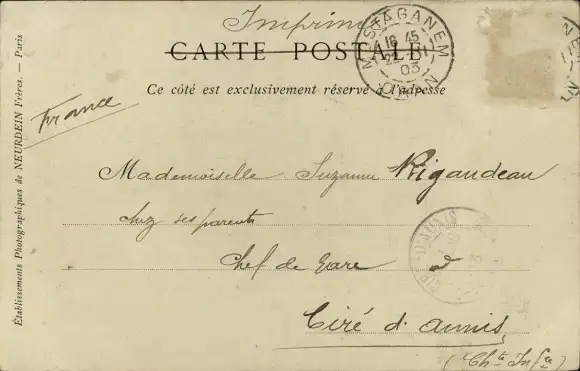 Imprimé
CARTE POSTALE
Ce côté est exclusivement réservé à l'adresse
MOSTAGANEM
16 45
03
ORAN
France
Mademoiselle Suzanne Rigaudeau
chez ses parents
Chef de gare
à
Ciré d'aunis
(Chte Infre)
CIRÉ-D'AUNIS
Établissements Photographiques de NEURDEIN Frères. — Paris